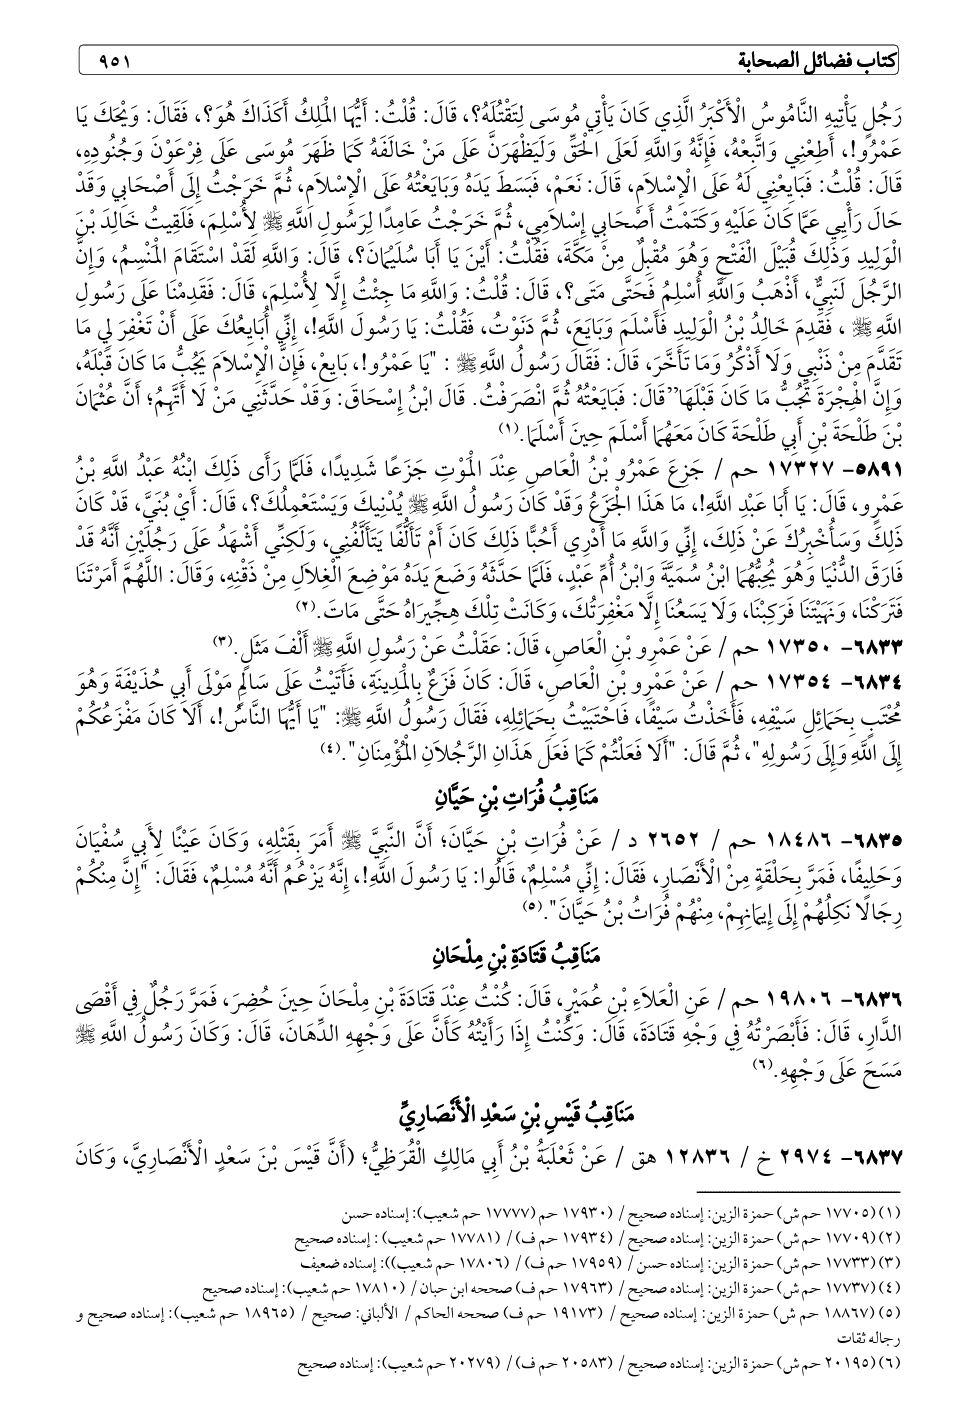 كتاب فضائل الصحابة ٩٥١
رَجُلٍ يَأْتِيهِ النَّامُوسُ الْأَكْبَرُ الَّذِي كَانَ يَأْتِي مُوسَى لِتَقْتُلَهُ؟، قَالَ: قُلْتُ: أَيُّهَا الْمَلِكُ أَكَذَاكَ هُوَ؟، فَقَالَ: وَيْحَكَ يَا
عَمْرُو!، أَطِعْنِي وَاتَّبِعْهُ، فَإِنَّهُ وَاللَّهِ لَعَلَى الْحَقِّ وَلَيَظْهَرَنَّ عَلَى مَنْ خَالَفَهُ كَمَا ظَهَرَ مُوسَى عَلَى فِرْعَوْنَ وَجُنُودِهِ،
قَالَ: قُلْتُ: فَبَايِعْنِي لَهُ عَلَى الْإِسْلَامِ، قَالَ: نَعَمْ، فَبَسَطَ يَدَهُ وَبَايَعْتُهُ عَلَى الْإِسْلَامِ، ثُمَّ خَرَجْتُ إِلَى أَصْحَابِي وَقَدْ
حَالَ رَأْيِي عَمَّا كَانَ عَلَيْهِ وَكَتَمْتُ أَصْحَابِي إِسْلَامِي، ثُمَّ خَرَجْتُ عَامِدًا لِرَسُولِ اللَّهِ ﷺ لِأُسْلِمَ، فَلَقِيتُ خَالِدَ بْنَ
الْوَلِيدِ وَذَلِكَ قُبَيْلَ الْفَتْحِ وَهُوَ مُقْبِلٌ مِنْ مَكَّةَ، فَقُلْتُ: أَيْنَ يَا أَبَا سُلَيْمَانَ؟، قَالَ: وَاللَّهِ لَقَدْ اسْتَقَامَ الْمَنْسِمُ، وَإِنَّ
الرَّجُلَ لَنَبِيٌّ، أَذْهَبُ وَاللَّهِ أُسْلِمُ فَحَتَّى مَتَى؟، قَالَ: قُلْتُ: وَاللَّهِ مَا جِئْتُ إِلَّا لِأُسْلِمَ، قَالَ: فَقَدِمْنَا عَلَى رَسُولِ
اللَّهِ ﷺ ، فَقَدِمَ خَالِدُ بْنُ الْوَلِيدِ فَأَسْلَمَ وَبَايَعَ، ثُمَّ دَنَوْتُ، فَقُلْتُ: يَا رَسُولَ اللَّهِ!، إِنِّي أُبَايِعُكَ عَلَى أَنْ تَغْفِرَ لِي مَا
تَقَدَّمَ مِنْ ذَنْبِي وَلَا أَذْكُرُ وَمَا تَأَخَّرَ، قَالَ: فَقَالَ رَسُولُ اللَّهِ ﷺ : "يَا عَمْرُو!، بَايِعْ، فَإِنَّ الْإِسْلَامَ يَجُبُّ مَا كَانَ قَبْلَهُ،
وَإِنَّ الْهِجْرَةَ تَجُبُّ مَا كَانَ قَبْلَهَا" قَالَ: فَبَايَعْتُهُ ثُمَّ انْصَرَفْتُ. قَالَ ابْنُ إِسْحَاقَ: وَقَدْ حَدَّثَنِي مَنْ لَا أَتَّهِمُ؛ أَنَّ عُثْمَانَ
بْنَ طَلْحَةَ بْنِ أَبِي طَلْحَةَ كَانَ مَعَهُمَا أَسْلَمَ حِينَ أَسْلَمَا.(١)
٥٨٩١- ١٧٣٢٧ حم / جَزِعَ عَمْرُو بْنُ الْعَاصِ عِنْدَ الْمَوْتِ جَزَعًا شَدِيدًا، فَلَمَّا رَأَى ذَلِكَ ابْنُهُ عَبْدُ اللَّهِ بْنُ
عَمْرٍو، قَالَ: يَا أَبَا عَبْدِ اللَّهِ!، مَا هَذَا الْجَزَعُ وَقَدْ كَانَ رَسُولُ اللَّهِ ﷺ يُدْنِيكَ وَيَسْتَعْمِلُكَ؟، قَالَ: أَيْ بُنَيَّ، قَدْ كَانَ
ذَلِكَ وَسَأُخْبِرُكَ عَنْ ذَلِكَ، إِنِّي وَاللَّهِ مَا أَدْرِي أَحُبًّا ذَلِكَ كَانَ أَمْ تَأَلُّفًا يَتَأَلَّفُنِي، وَلَكِنِّي أَشْهَدُ عَلَى رَجُلَيْنِ أَنَّهُ قَدْ
فَارَقَ الدُّنْيَا وَهُوَ يُحِبُّهُمَا ابْنُ سُمَيَّةَ وَابْنُ أُمِّ عَبْدٍ، فَلَمَّا حَدَّثَهُ وَضَعَ يَدَهُ مَوْضِعَ الْغِلَالِ مِنْ ذَقْنِهِ، وَقَالَ: اللَّهُمَّ أَمَرْتَنَا
فَتَرَكْنَا، وَنَهَيْتَنَا فَرَكِبْنَا، وَلَا يَسَعُنَا إِلَّا مَغْفِرَتُكَ، وَكَانَتْ تِلْكَ هِجِّيرَاهُ حَتَّى مَاتَ.(٢)
٦٨٣٣- ١٧٣٥٠ حم / عَنْ عَمْرِو بْنِ الْعَاصِ، قَالَ: عَقَلْتُ عَنْ رَسُولِ اللَّهِ ﷺ أَلْفَ مَثَلٍ.(٣)
٦٨٣٤- ١٧٣٥٤ حم / عَنْ عَمْرِو بْنِ الْعَاصِ، قَالَ: كَانَ فَزَعٌ بِالْمَدِينَةِ، فَأَتَيْتُ عَلَى سَالِمٍ مَوْلَى أَبِي حُذَيْفَةَ وَهُوَ
مُحْتَبٍ بِحَمَائِلِ سَيْفِهِ، فَأَخَذْتُ سَيْفًا، فَاحْتَبَيْتُ بِحَمَائِلِهِ، فَقَالَ رَسُولُ اللَّهِ ﷺ: "يَا أَيُّهَا النَّاسُ!، أَلَا كَانَ مَفْزَعُكُمْ
إِلَى اللَّهِ وَإِلَى رَسُولِهِ"، ثُمَّ قَالَ: "أَلَا فَعَلْتُمْ كَمَا فَعَلَ هَذَانِ الرَّجُلَانِ الْمُؤْمِنَانِ".(٤)
مَنَاقِبُ فُرَاتِ بْنِ حَيَّانِ
٦٨٣٥- ١٨٤٨٦ حم / ٢٦٥٢ د / عَنْ فُرَاتِ بْنِ حَيَّانَ؛ أَنَّ النَّبِيَّ ﷺ أَمَرَ بِقَتْلِهِ، وَكَانَ عَيْنًا لِأَبِي سُفْيَانَ
وَحَلِيفًا، فَمَرَّ بِحَلْقَةٍ مِنْ الْأَنْصَارِ، فَقَالَ: إِنِّي مُسْلِمٌ، قَالُوا: يَا رَسُولَ اللَّهِ!، إِنَّهُ يَزْعُمُ أَنَّهُ مُسْلِمٌ، فَقَالَ: "إِنَّ مِنْكُمْ
رِجَالًا نَكِلُهُمْ إِلَى إِيمَانِهِمْ، مِنْهُمْ فُرَاتُ بْنُ حَيَّانَ".(٥)
مَنَاقِبُ قَتَادَةِ بْنِ مِلْحَانِ
٦٨٣٦- ١٩٨٠٦ حم / عَنِ الْعَلَاءِ بْنِ عُمَيْرٍ، قَالَ: كُنْتُ عِنْدَ قَتَادَةَ بْنِ مِلْحَانَ حِينَ حُضِرَ، فَمَرَّ رَجُلٌ فِي أَقْصَى
الدَّارِ، قَالَ: فَأَبْصَرْتُهُ فِي وَجْهِ قَتَادَةَ، قَالَ: وَكُنْتُ إِذَا رَأَيْتُهُ كَأَنَّ عَلَى وَجْهِهِ الدِّهَانَ، قَالَ: وَكَانَ رَسُولُ اللَّهِ ﷺ
مَسَحَ عَلَى وَجْهِهِ.(٦)
مَنَاقِبُ قَيْسِ بْنِ سَعْدِ الْأَنْصَارِيِّ
٦٨٣٧- ٢٩٧٤ خ / ١٢٨٣٦ هق / عَنْ ثَعْلَبَةُ بْنُ أَبِي مَالِكٍ الْقُرَظِيُّ؛ (أَنَّ قَيْسَ بْنَ سَعْدٍ الْأَنْصَارِيَّ، وَكَانَ
(١) (١٧٧٠٥ حم ش) حمزة الزين: إسناده صحيح / (١٧٩٣٠ حم (١٧٧٧٧ حم شعيب): إسناده حسن
(٢) (١٧٧٠٩ حم ش) حمزة الزين: إسناده صحيح / (١٧٩٣٤ حم ف) / (١٧٧٨١ حم شعيب) : إسناده صحيح
(٣) (١٧٧٣٣ حم ش) حمزة الزين: إسناده حسن / (١٧٩٥٩ حم ف) / (١٧٨٠٦ حم شعيب)): إسناده ضعيف
(٤) (١٧٧٣٧ حم ش) حمزة الزين: إسناده صحيح / (١٧٩٦٣ حم ف) صححه ابن حبان / (١٧٨١٠ حم شعيب): إسناده صحيح
(٥) (١٨٨٦٧ حم ش) حمزة الزين: إسناده صحيح / (١٩١٧٣ حم ف) صححه الحاكم / الألباني: صحيح / (١٨٩٦٥ حم شعيب): إسناده صحيح و
رجاله ثقات
(٦) (٢٠١٩٥ حم ش) حمزة الزين: إسناده صحيح / (٢٠٥٨٣ حم ف) / (٢٠٢٧٩ حم شعيب): إسناده صحيح